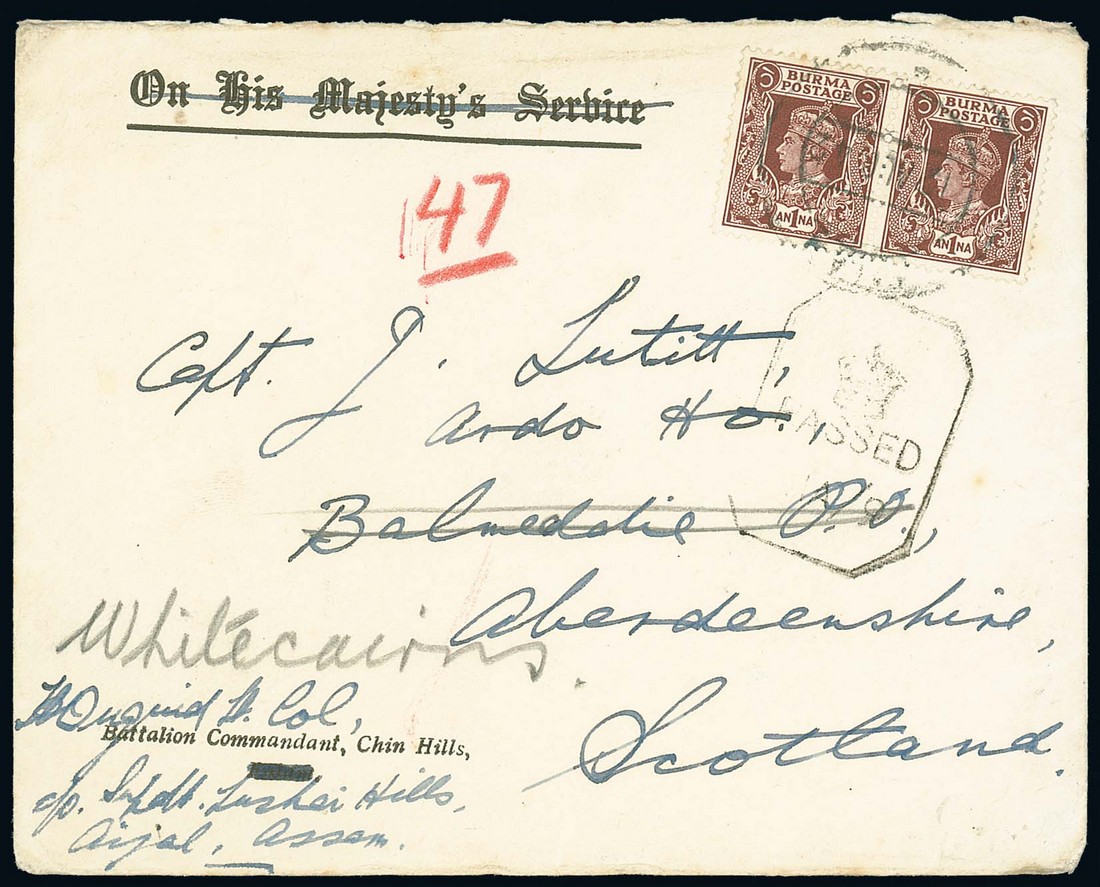 On His Majesty's Service
BURMA POSTAGE
AN1NA
BURMA POSTAGE
AN1NA
47
Capt. J. Lutitt,
Ardo Ho.,
Balmeddie P.O.,
Aberdeenshire,
Scotland.
PASSED
Whitecairns.
Duguid Lt. Col,
Battalion Commandant, Chin Hills,
c/o. Supdt. Lushai Hills,
Aijal, Assam.